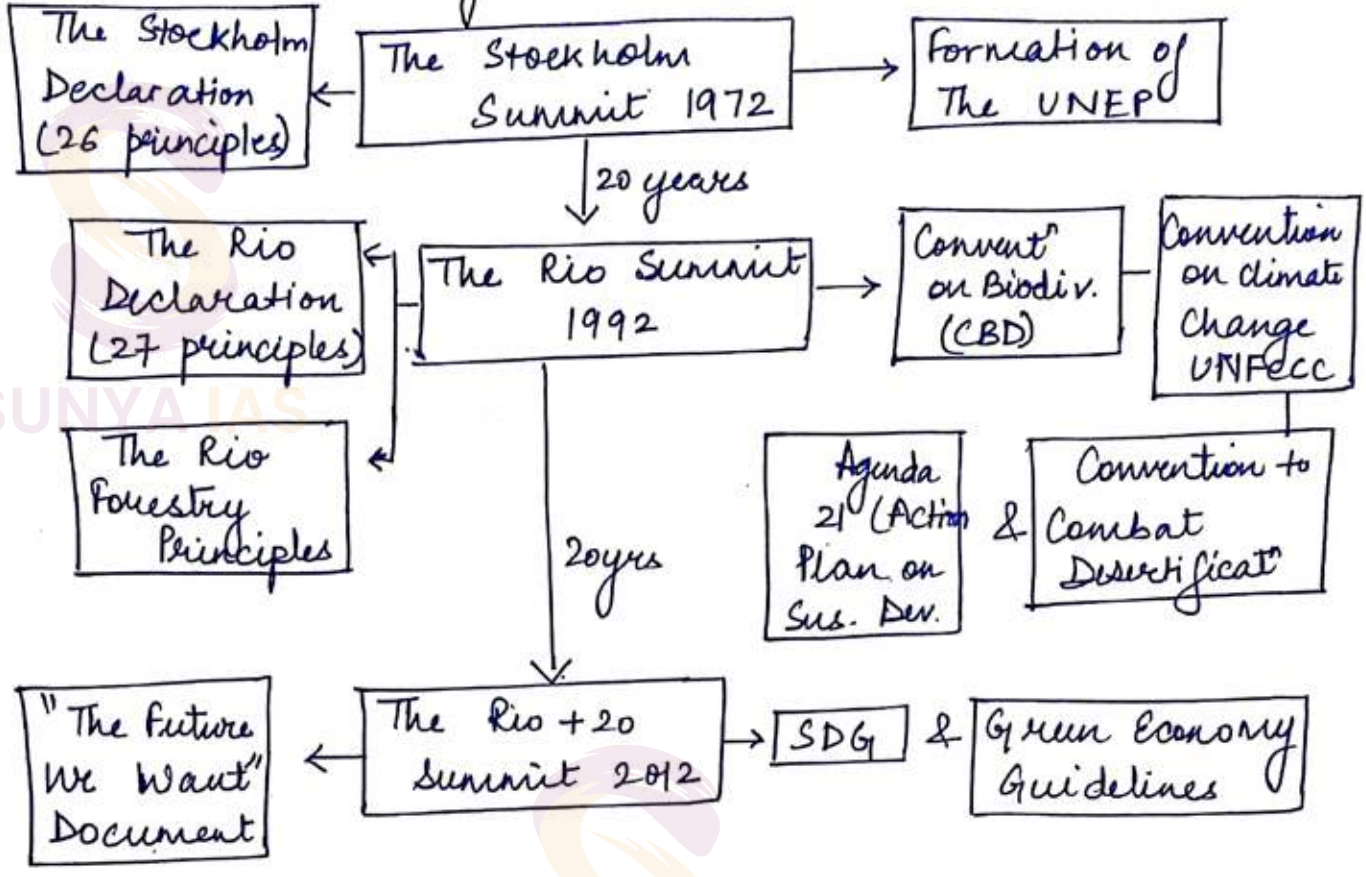 The Stockholm
Declaration
(26 principles)
The Stockholm
Summit 1972
Formation of
The UNEP
20 years
The Rio
Declaration
(27 principles)
The Rio Summit
1992
Conventⁿ
on Biodiv.
(CBD)
Convention
on climate
Change
UNFCCC
The Rio
Forestry
Principles
20yrs
Agenda
21 (Action
Plan on
Sus. Dev.
&
Convention to
Combat
Desertificatⁿ
"The Future
We Want"
Document
The Rio +20
Summit 2012
SDG
&
Green Economy
Guidelines
SUNYA IAS